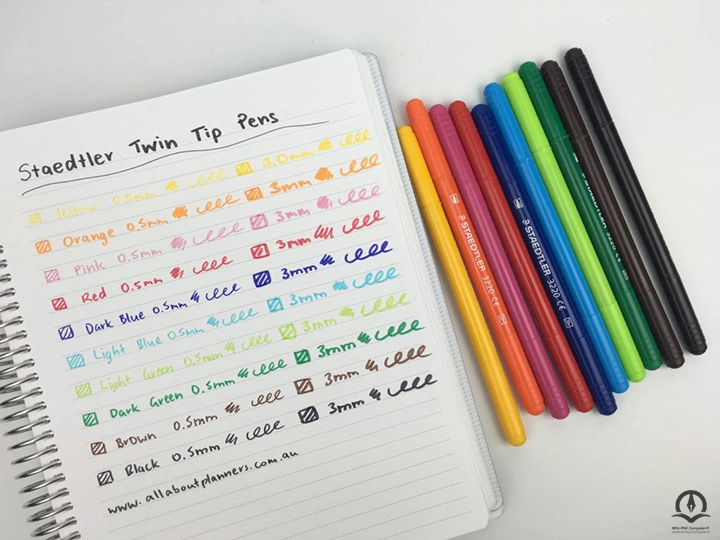 Staedtler Twin Tip Pens
Yellow 0.5mm 3.0mm
Orange 0.5mm 3mm
Pink 0.5mm 3mm
Red 0.5mm 3mm
Dark Blue 0.5mm 3mm
Light Blue 0.5mm 3mm
Light Green 0.5mm 3mm
Dark Green 0.5mm 3mm
Brown 0.5mm 3mm
Black 0.5mm 3mm
www.allaboutplanners.com.au
STAEDTLER 3220 CE
STAEDTLER 3220 CE